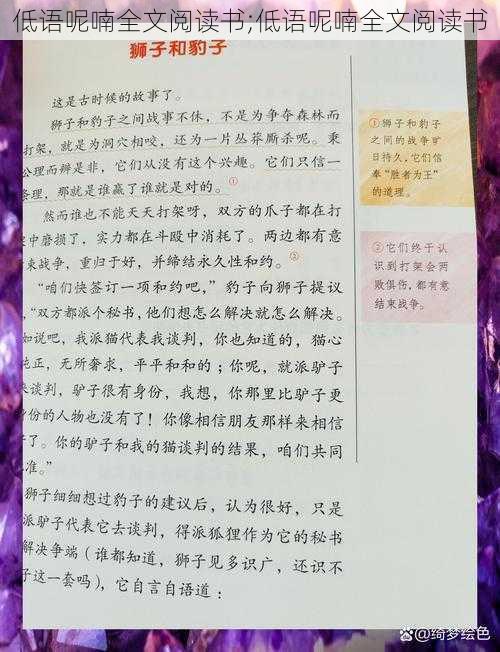 低语呢喃全文阅读书;低语呢喃全文阅读书
狮子和豹子
这是古时候的故事了。
狮子和豹子之间战事不休，不是为争夺森林而
打架，就是为洞穴相咬，还为一片丛莽厮杀呢。秉
公理而辨是非，它们从没有这个兴趣。它们只信一
条理，那就是谁赢了谁就是对的。①
然而谁也不能天天打架呀，双方的爪子都在打
架中磨损了，实力都在斗殴中消耗了。两边都有意
结束战争，重归于好，并缔结永久性和约。②
“咱们快签订一项和约吧，”豹子向狮子提议
，“双方都派个秘书，他们想怎么解决就怎么解决。
如说吧，我派猫代表我谈判，你也知道的，猫心
纯正，无所奢求，平平和和的；你呢，就派驴子
来谈判，驴子很有身份，我想，你那里比驴子更
身份的人物也没有了！你像相信朋友那样来相信
子了。你的驴子和我的猫谈判的结果，咱们共同
批准。”
狮子细细想过豹子的建议后，认为很好，只是
派驴子代表它去谈判，得派狐狸作为它的秘书
解决争端（谁都知道，狮子见多识广，还识不
子这一套吗），它自言自语道：
①狮子和豹子
之间的战争旷
日持久，它们信
奉“胜者为王”
的道理。
②它们终于认
识到打架会两
败俱伤，都有意
结束战争。
@绮梦绘色